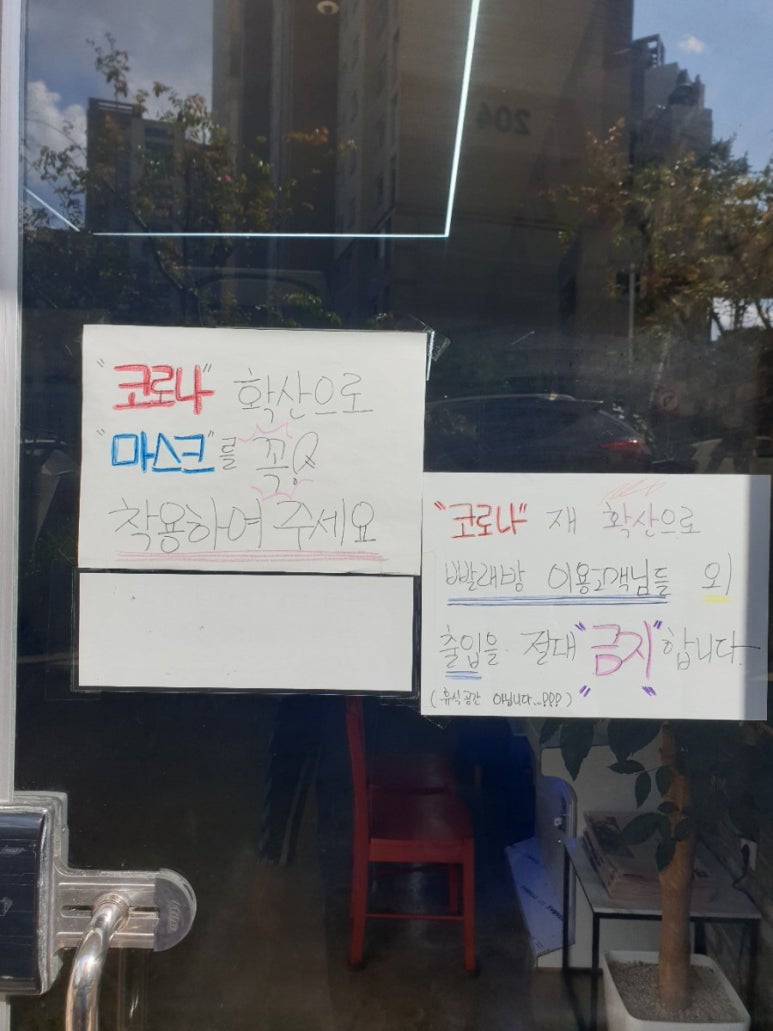 "코로나" 확산으로
"마스크"를 꼭!!
착용하여 주세요
"코로나" 재 확산으로
빨래방 이용고객님들 외
출입을 절대 "금지" 합니다.
(휴식공간 아닙니다...!!!)
204